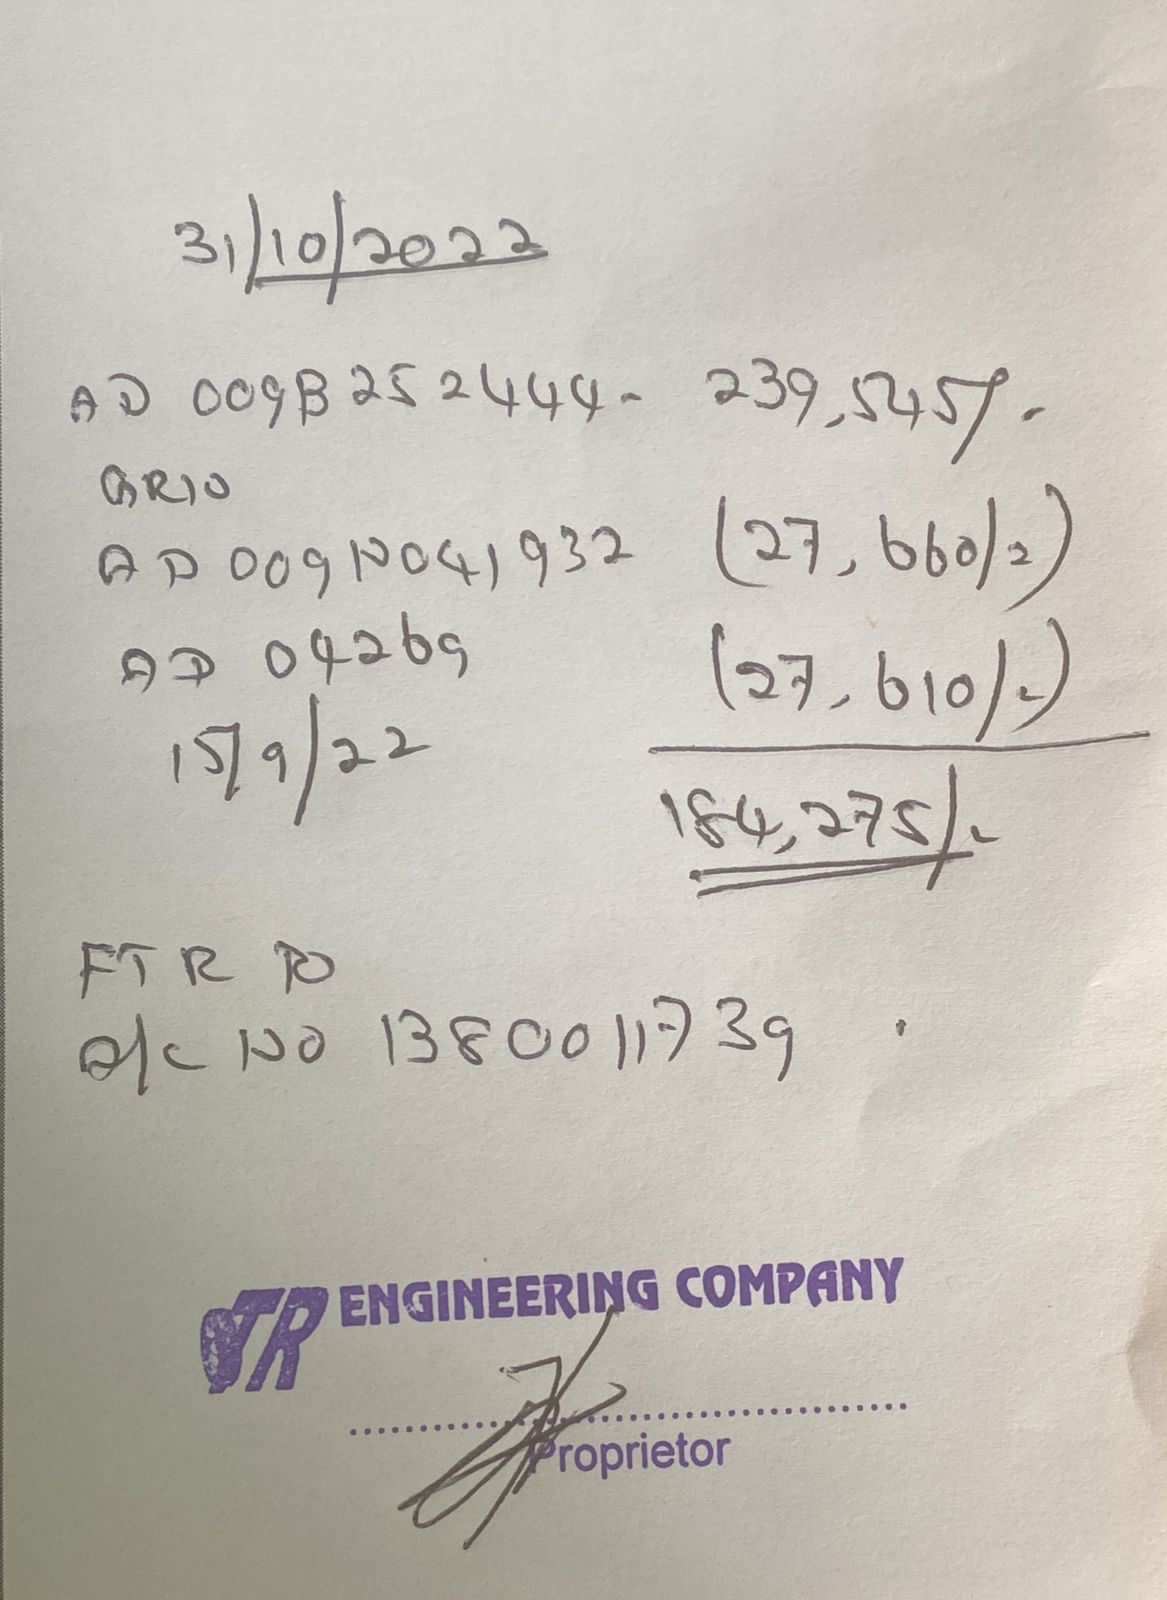 31/10/2022
AD 009B252444- 239,545/-
GRN
AD 009N041932 (27,660/-)
AD 04269 (27,610/-)
15/9/22
184,275/-
FTR TO
A/C NO 1380011739
TR ENGINEERING COMPANY
Proprietor